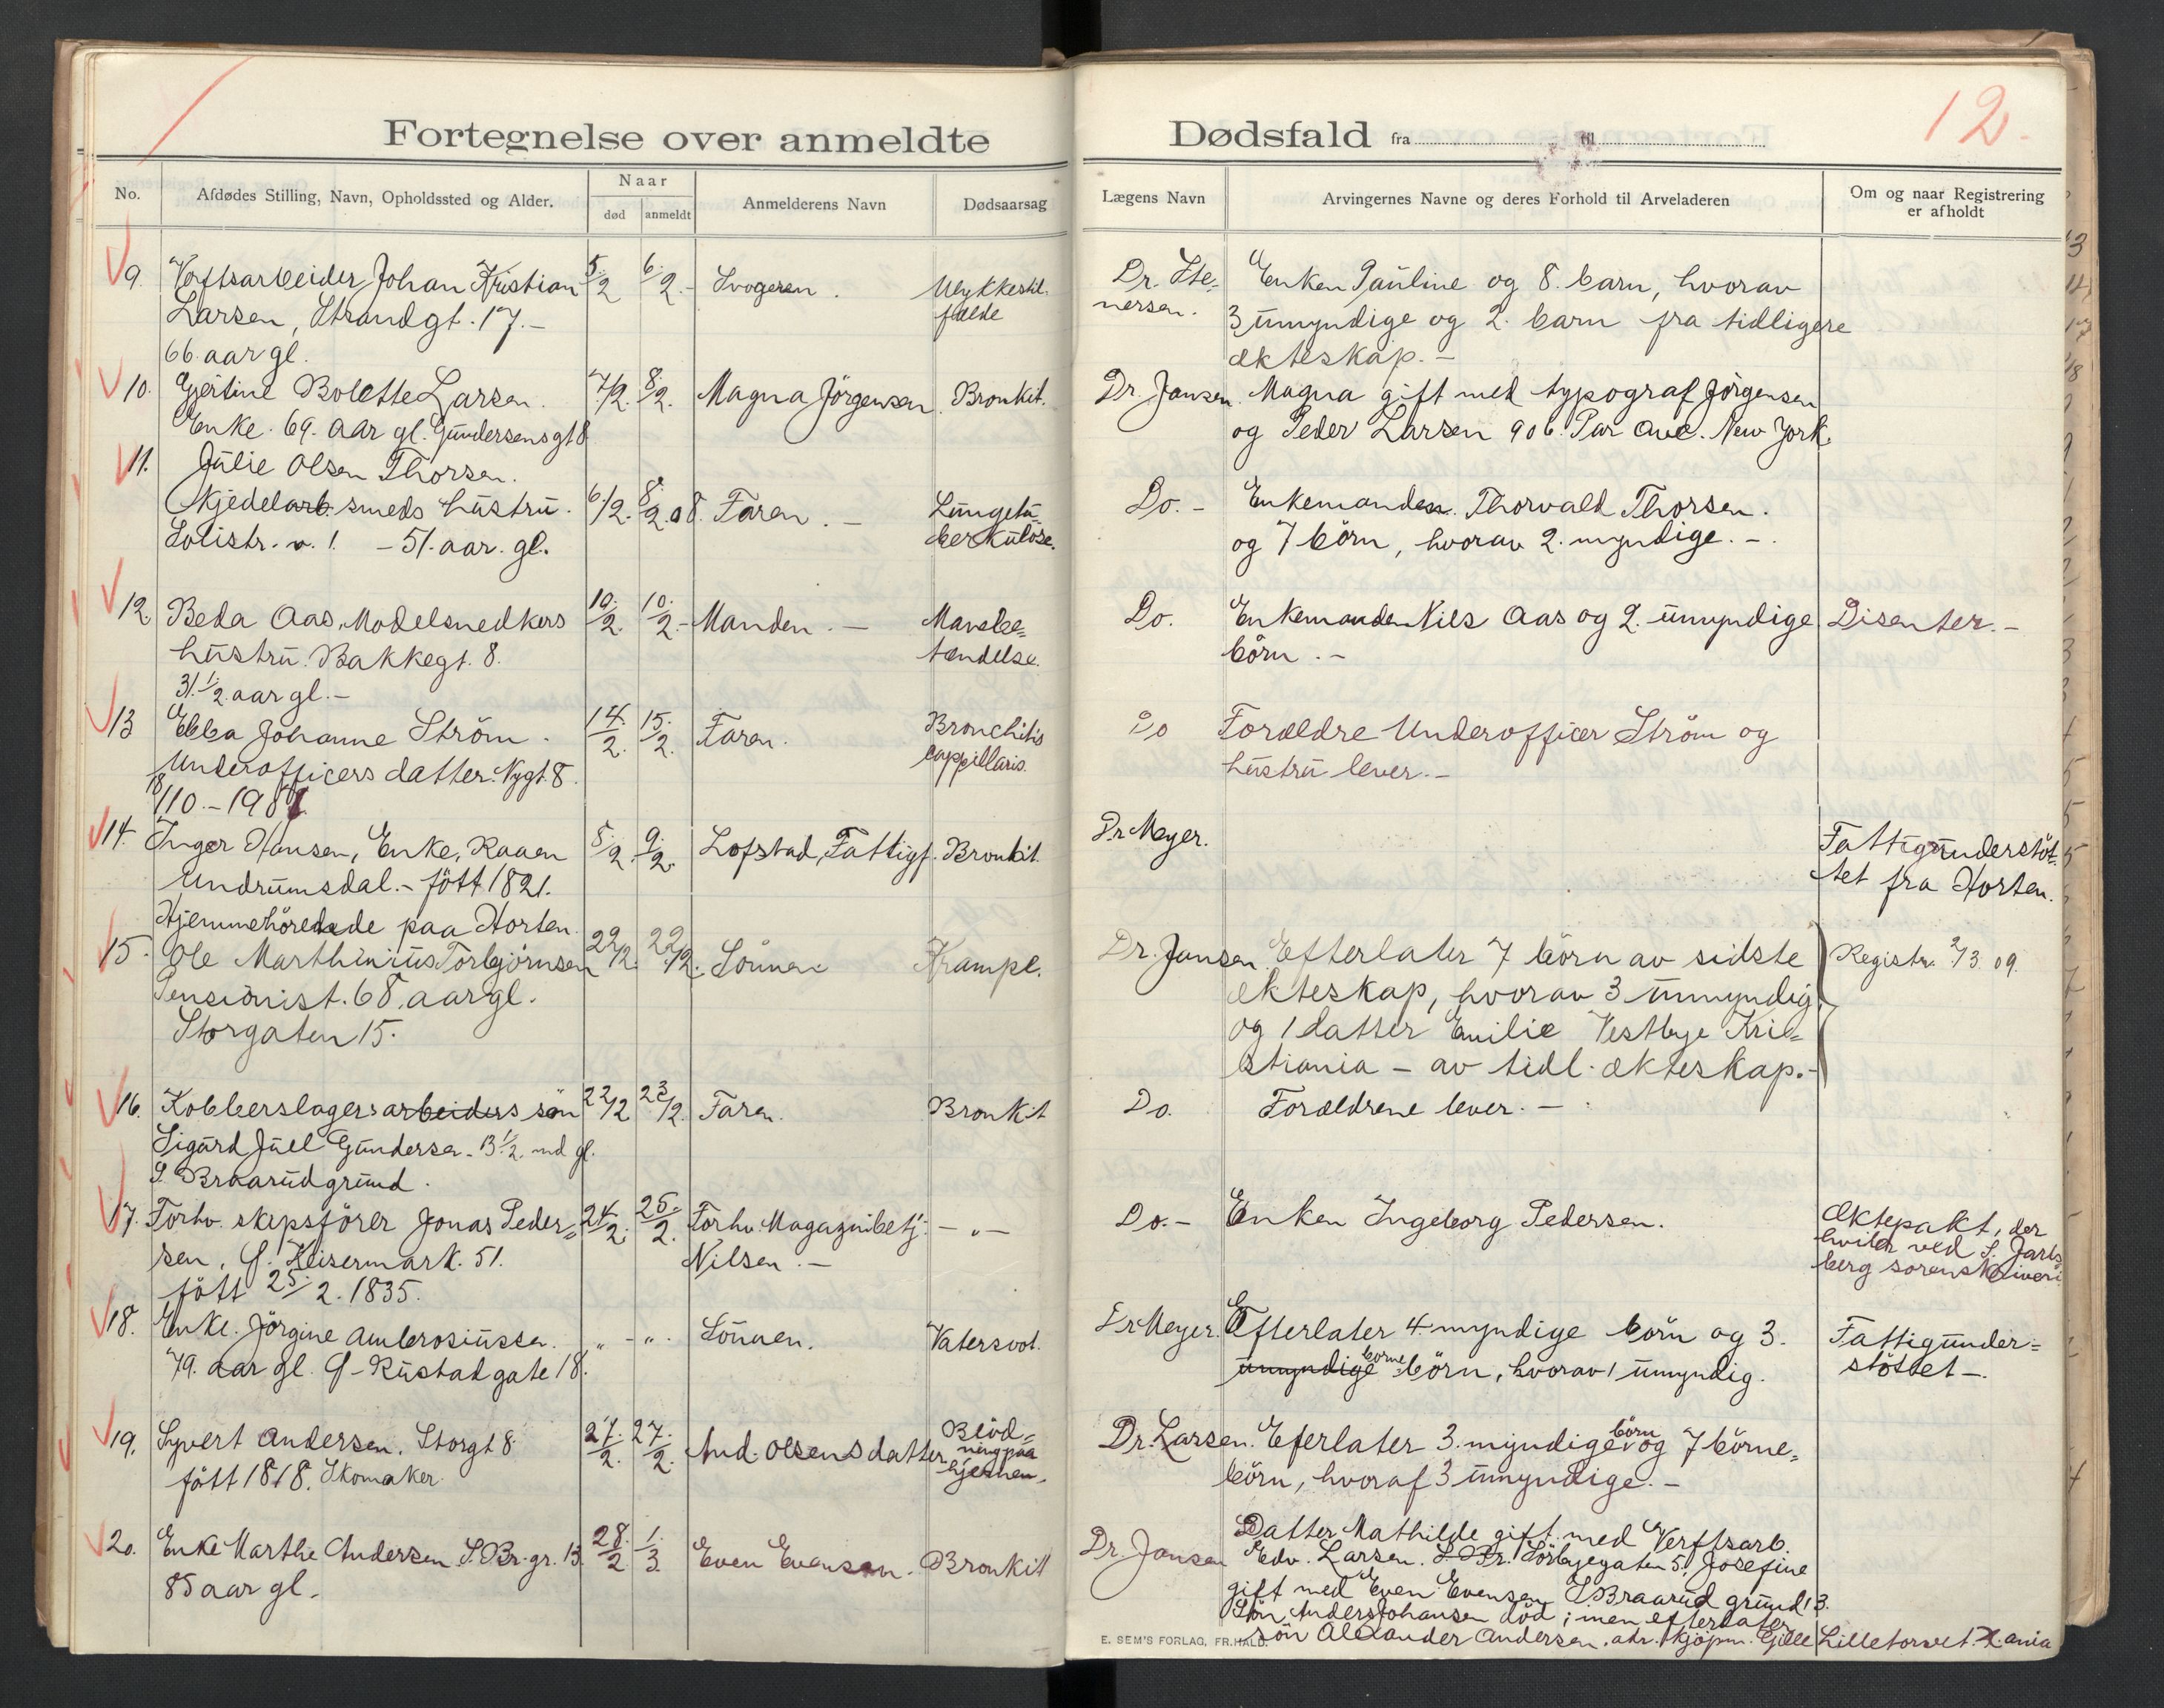 12.
Fortegnelse over anmeldte Dødsfald fra til
No.
Afdødes Stilling, Navn, Opholdssted og Alder.
Naar
død
anmeldt
Anmelderens Navn
Dødsaarsag
Lægens Navn
Arvingernes Navne og deres Forhold til Arveladeren
Om og naar Registrering
er afholdt
9. Verftsarbeider Johan Kristian 5/2 6/2.- Svogeren. Ulykkestil- Dr. Ste- Enken Pauline og 8. barn, hvorav
Larsen, Strandgt. 17.- fælde nersen. 3 umyndige og 2. barn fra tidligere
66. aar gl. ekteskap.-
10. Gjertine Bolette Larsen. 7/2. 8/2. Magna Jörgensen. Bronkit. Dr. Jansen. Magna gift med typograf Jörgensen
Enke. 69. aar gl. Gundersensgt 8 og Peder Larsen 906. Par Ave. New York.
11. Julie Olsen Thorsen.
Kjedelarb. smeds hustru. 6/2. 8/2.08. Faren.- Lungetu- Do.- Enkemanden Thorvald Thorsen.
51. aar. gl. berkulose. og 7 börn, hvorav 2. myndige.-
12 Beda Aas, Modelsnedkers 10/2. 10/2.- Manden.- Mavebe- Do. Enkemanden Nils Aas og 2. umyndige Disenter.-
hustru. Bakkegt. 8. tændelse. börn.-
31.1/2. aar gl.-
13 Ebba Johanne Ström. 14/2. 15/2. Faren. Bronchitis Do Forældre Underofficer Ström og
Underofficers datter. Nygt. 8. cappillaris. hustru lever.-
18/10.-190
14. Inger Hansen, Enke, Raaen 5/2. 9/2. Lofstad, Fattigf. Bronkit. Dr. Meyer. Fattigunderstöt-
Undrumsdal.- fött 1821. tet fra Horten.
Hjemmehörende paa Horten.
15. Ole Marthinius Torbjörnsen 22/2. 22/2. Sönnen Krampe. Dr. Jansen. Efterlater 7 börn av sidste Registr. 2/3.09.
Pensionist. 68. aar gl. ekteskap, hvorav 3 umyndig.
Storgaten 15. og 1 datter Emilie Vestbye Kri-
stiania - av tidl. ekteskap.-
16. Kobberslagersarbeiders sön 22/2 23/2. Faren. Bronkit Do. Forældrene lever.-
Sigurd Juel Gundersen. 13 1/2. md gl.
S. Braarudgrund.
17. Forhv. skipsförer Jonas Peder- 24/2. 25/2. Forhv. Magazinbetj. -"- Do.- Enken Ingeborg Pedersen. Ektepakt, der
sen, G. Keisermark. 51. Nilsen.- hviler ved S. Jarls
fött 25/2. 1835. berg sorenskriveri
18. Enke. Jörgine Ambrosiussen. " - ". Sönnen. Vatersoot. Dr Meyer. Efterlater 4. myndige börn og 3. Fattigunder-
79. aar gl. G- Rustadgate 18. umyndige borne börn, hvorav 1 umyndig. stöttet-.
19. Syvert Andersen. Storgt 8 27/2. 27/2. And. Olsens datter. Blöd- Dr. Larsen. Eferlater 3. myndige börn og 7 börne-
fött 1818. Skomaker. ning paa börn, hvoraf 3 umyndige.-
hjernen.
20. Enke Marthe Andersen S. Br. gr. 13 28/2 1/3 Even Evensen. Bronkit Dr. Jansen Datter Mathilde gift med Verftsarb.
85 aar gl. Edv. Larsen. S. Br. Sörbyegaten 5. Josefine
gift med Even Evensen S Braarud grund 13.
Sön Anders Johansen död; men efterlater
sön Alexander Andersen. adr. kjöpm. Gjelle Lilletorvet. X.ania
E. SEM'S FORLAG, FR.HALD.